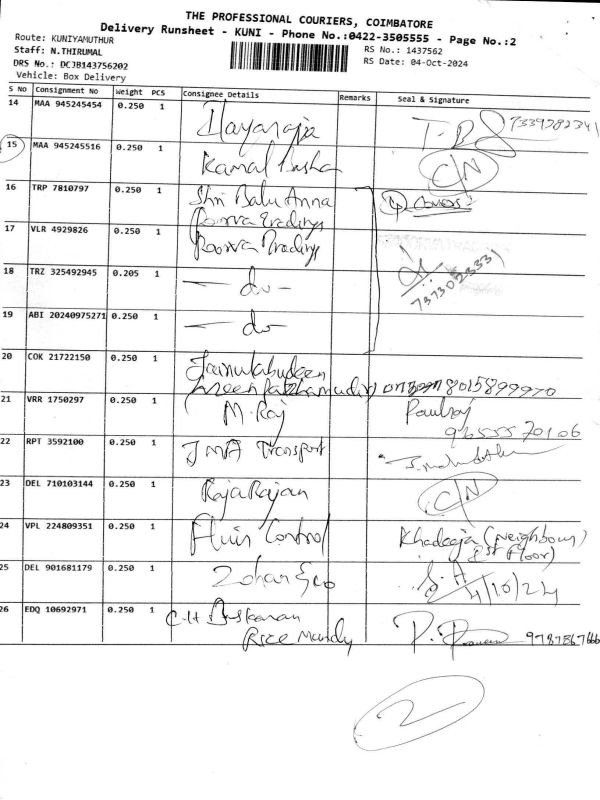 THE PROFESSIONAL COURIERS, COIMBATORE
Delivery Runsheet - KUNI - Phone No.:0422-3505555 - Page No.:2
Route: KUNIYAMUTHUR
RS No.: 1437562
Staff: N.THIRUMAL
RS Date: 04-Oct-2024
DRS No.: DCJB143756202
Vehicle: Box Delivery
S No Consignment No Weight PCS Consignee Details Remarks Seal & Signature
14 MAA 945245454 0.250 1 7339282341
15 MAA 945245516 0.250 1 Kamal Basha C/N
16 TRP 7810797 0.250 1 Shri Balu Anna
Poorva Tradings
17 VLR 4929826 0.250 1 Poorva Tradings
18 TRZ 325492945 0.205 1 - do -
19 ABI 20240975271 0.250 1 - do -
20 COK 21722150 0.250 1 Jainulabudeen
8015899970
21 VRR 1750297 0.250 1 M. Raj Paulraj
9655570106
22 RPT 3592100 0.250 1 JMA Transport
23 DEL 710103144 0.250 1 RajaRajan C/N
24 VPL 224809351 0.250 1 Fluir Control Khadeeja (Neighbour)
1st Floor)
25 DEL 901681179 0.250 1 Zohar & Co S.A
4/10/24
26 EDQ 10692971 0.250 1 C.H Baskaran
Rice Mandy 9787867666
2